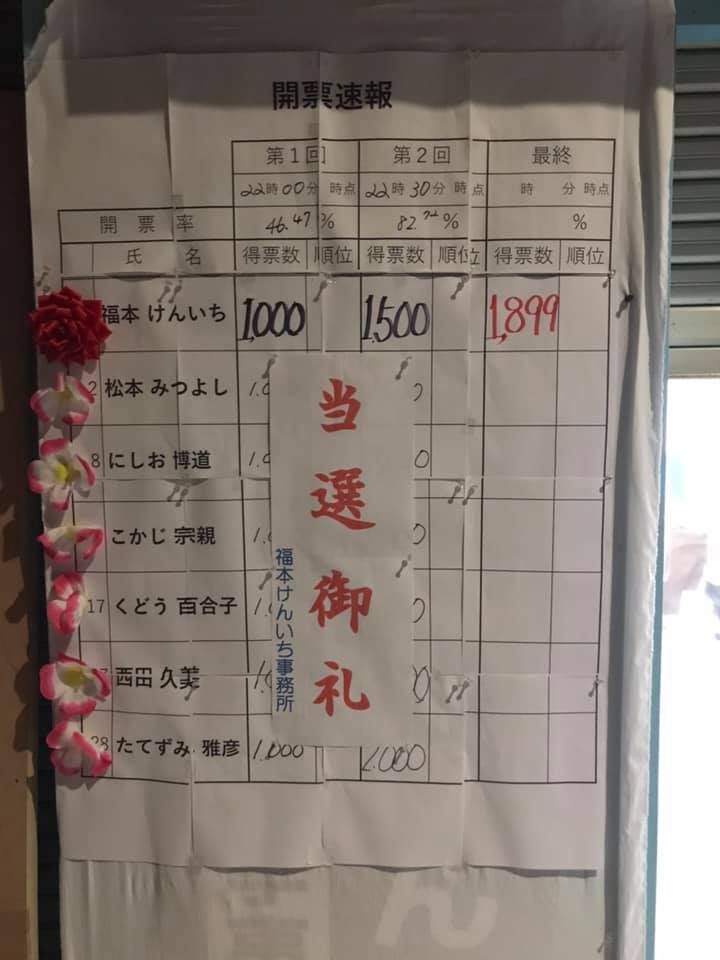 開票速報
第1回 第2回 最終
22時00分 時点 22時30分 時点 時 分 時点
開票率 46.47% 82.72% %
氏名 得票数 順位 得票数 順位 得票数 順位
福本 けんいち 1,000 1,500 1,899
2 松本 みつよし
8 にしお 博道
こかじ 宗親
17 くどう 百合子
西田 久美
28 たてずみ 雅彦 1,000 1,000
当選御礼
福本けんいち事務所
ん